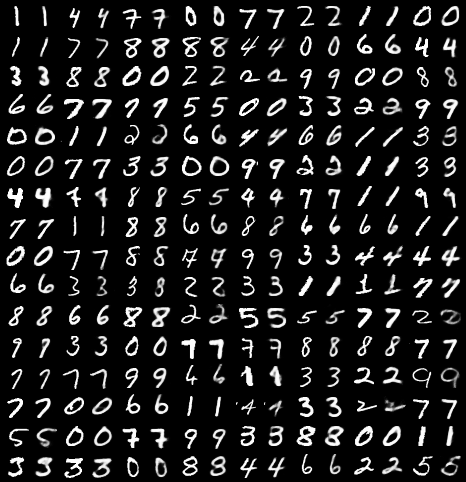 1 1 4 4 7 7 0 0 7 7 2 2 1 1 0 0
1 1 7 7 8 8 8 8 4 4 0 0 6 6 4 4
3 3 8 8 0 0 2 2 2 2 9 9 0 0 8 8
6 6 7 7 7 7 5 5 0 0 3 3 2 2 9 9
0 0 1 1 2 2 6 6 4 4 6 6 1 1 3 3
0 0 7 7 3 3 0 0 9 9 2 2 1 1 3 3
4 4 7 7 8 8 5 5 4 4 7 7 1 1 9 9
7 7 1 1 8 8 6 6 8 8 6 6 6 6 1 1
0 0 7 7 8 8 7 7 9 9 3 3 4 4 4 4
6 6 3 3 3 8 2 2 3 3 1 1 1 1 7 7
8 8 6 6 8 8 2 2 5 5 5 5 7 7 2 2
9 9 3 3 0 0 7 7 7 7 8 8 8 8 7 7
7 7 7 7 9 9 6 6 1 1 3 3 2 2 9 9
7 7 0 0 6 6 1 1 4 4 3 3 2 7 7
5 5 0 0 7 7 9 9 3 3 8 8 0 0 1 1
3 3 3 3 0 0 8 8 4 4 6 6 2 2 5 5